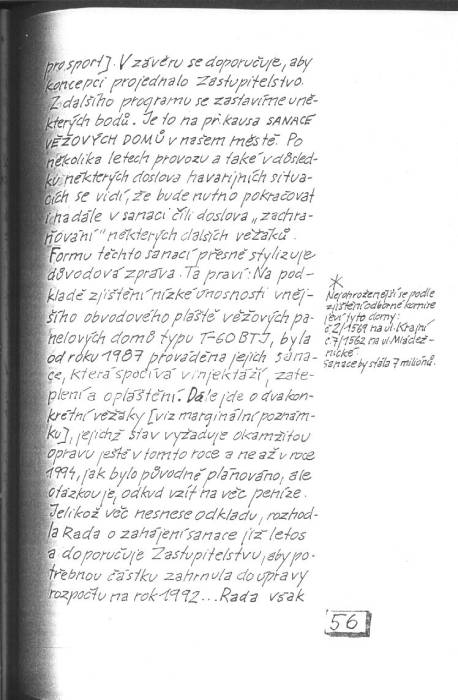 pro sport]. V závěru se doporučuje, aby
koncepci projednalo Zastupitelstvo.
Z dalšího programu se zastavíme u ně-
kterých bodů. Je to na př. kausa SANACE
VĚŽOVÝCH DOMŮ v našem městě. Po
několika letech provozu a také v důsled-
ku některých doslova havarijních situa-
cích se vidí, že bude nutno pokračovat
i nadále v sanaci čili doslova „zachra-
ňování" některých dalších věžáků.
Formu těchto sanací přesně stylizuje
důvodová zpráva. Ta praví: Na pod-
kladě zjištění nízké únosnosti vněj-
šího obvodového pláště věžových pa-
nelových domů typu T-60 BTJ, byla
od roku 1987 prováděna jejich sana-
ce, která spočívá v injektáži, zate-
plení a opláštění. Dále jde o dva kon-
krétní věžáky [viz marginální poznám-
ku], jejichž stav vyžaduje okamžitou
opravu ještě v tomto roce a ne až v roce
1994, jak bylo původně plánováno, ale
otázkou je, odkud vzít na věc peníze.
Jelikož věc nesnese odkladu, rozhod-
la Rada o zahájení sanace již letos
a doporučuje Zastupitelstvu, aby po-
třebnou částku zahrnula do úpravy
rozpočtu na rok 1992... Rada však
*
Nejohroženější se podle
zjištění odborné komise
jeví tyto domy:
č.2/1569 na ul. Krajní
č.7/1562 na ul. Mládež-
nické.
Sanace by stála 7 milionů.
56